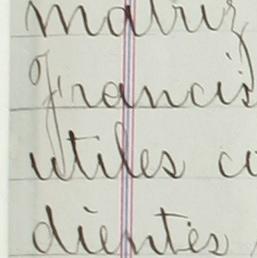 matriz
Francis
utiles co
dientes